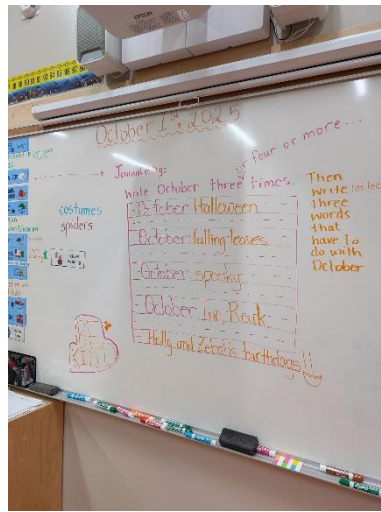 October 1st, 2025
Journaling:
or four or more....
Write October three times.
Then
write
three
words
that
have to
do with
October
costumes
spiders
October Halloween
October falling leaves
October spooky
October
Holly and birthdays!!
EPSON